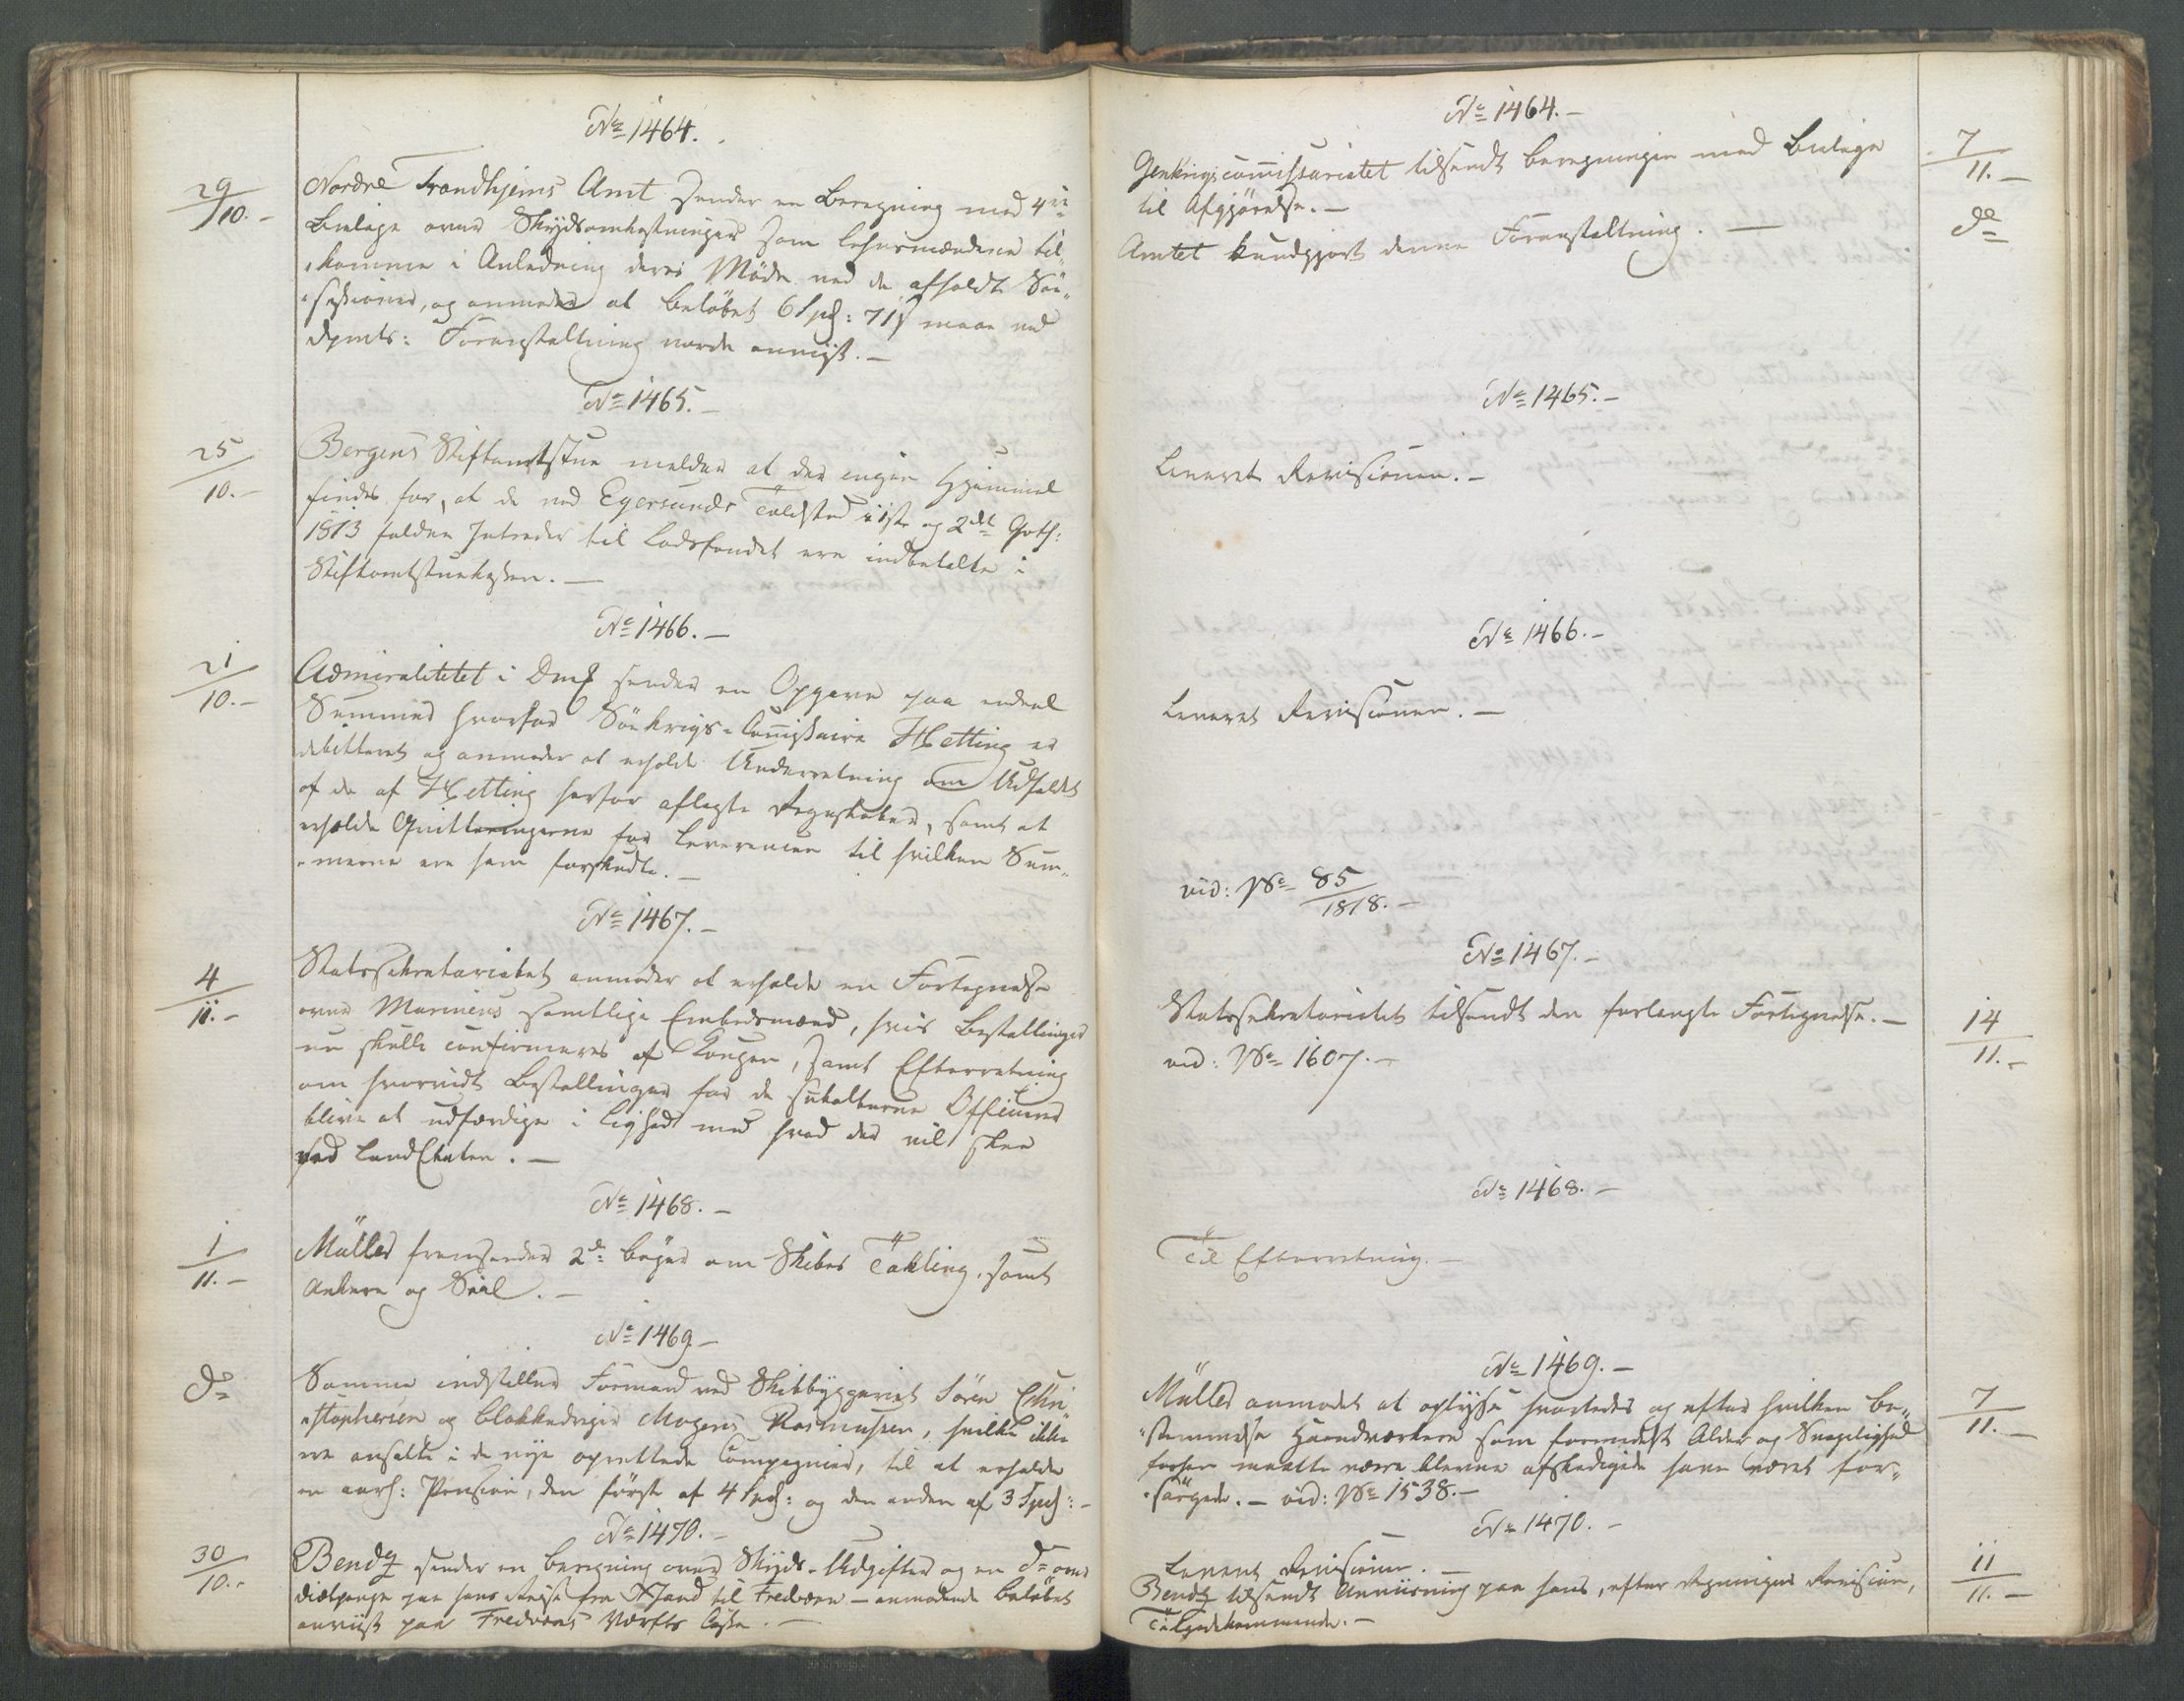 No 1464.
29/10.-
Nordre Trondhjems Amt sender en Beregning med 4re
Bielage over Skydsomkostninger som Lehnsmændene til-
"komme i Anledning deres Møde ved de afholdte Söe-
"sessioner, og anmoder at Beløbet 6 Spd: 71 s maae ved
Dpmts: Foranstaltning vorde anviist.-
No 1465.-
25/10.-
Bergens Stiftamtstue melder at der ingen Hjemmel
findes for, at de ved Egersunds Toldsted i 1ste og 2det Qvth:
1813 faldne Intrader til Lodsfondet ere indbetalte i
Stiftamtstuekassen.-
No 1466.-
21/10.-
Admiralitetet i Dmk sender en Opgave paa endeel
Summer hvorfor Söekrigs-Comissaire Hetting er
debitteret og anmoder at erholde Underretning om Udfaldet
af de af Hetting herfor aflagte Regnskaber, samt at
erholde Quitteringerne for Leverancen til hvilken Sum-
"merne ere ham forskudte.-
No 1467.-
4/11.-
Statssekretariatet anmoder at erholde en Fortegnelse
over Marinens samtlige Embedsmænd, hvis Bestallinger
nu skulle confirmeres af Kongen, samt Efterretning
om hvorvidt Bestallinger for de subalterne Officerer
blive at udfærdige i Lighed med hvad der vil skee
ved LandEtaten.-
No 1468.-
1/11.-
Müller fremsender 2de Bøger om Skibes Takling, samt
Ankere og Seil.-
No 1469-
do
Samme indstiller Formand ved Skibbyggeriet Sören Chri-
"stophersen og Blokkedreier Mogens Rasmussen, hvilke ikke
ere ansatte i de nye oprettede Compagnier, til at erholde
en aarl: Pension, den første af 4 Spd: og den anden af 3 Spd:-
No 1470.-
30/10.-
Bendz sender en Beregning over Skyds-Udgifter og en do over
Diætpenge paa hans Reise fra XSand til Fredværn - anmodende Beløbet
anviist paa Fredværns Værfts Casse.-
No 1464.-
Genkrigscomissariatet tilsendt Beregningen med Bielage
til Afgjörelse.-
7/11.-
Amtet kundgjort denne Foranstaltning.-
do
No 1465.-
Leveret Revisionen.-
No 1466.-
Leveret Revisionen.-
vid: No 85/1818.-
No 1467.-
Statssekretariatet tilsendt den forlangte Fortegnelse.-
14/11.-
vid: No 1607.-
No 1468.-
Til Efterretning.-
No 1469.-
Müller anmodet at oplyse hvorledes og efter hvilken Be-
7/11.-
"stemmelse Haandværkere som formedelst Alder og Svagelighed
forhen maatte være blevne afskedigede have været for-
"sørgede.- vid: No 1538.-
No 1470.-
Leveret Revisionen.-
Bendz tilsendt Anviisning paa hans, efter Regningens Revision,
11/11.-
Tilgodekommende.-